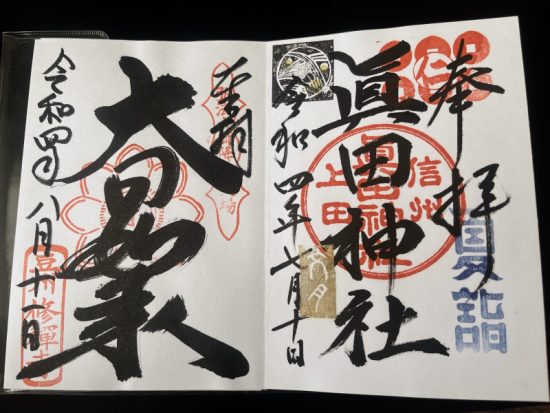 奉拝
夏詣
眞田神社
信州
眞田神社
上田
令和四年七月十日
文月
奉拝
大日如来
令和四年八月十一日
豆州修禪寺